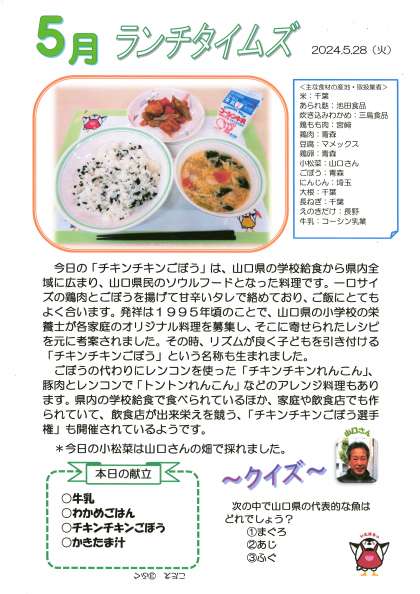 5月 ランチタイムズ
2024.5.28（火）
＜主な食材の産地・取扱業者＞
米：千葉
あられ麩：池田食品
炊き込みわかめ：三島食品
鶏もも肉：宮崎
鶏肉：青森
豆腐：マメックス
鶏卵：青森
小松菜：山口さん
ごぼう：青森
にんじん：埼玉
大根：千葉
長ねぎ：千葉
えのきだけ：長野
牛乳：コーシン乳業
今日の「チキンチキンごぼう」は、山口県の学校給食から県内全
域に広まり、山口県民のソウルフードとなった料理です。一口サイ
ズの鶏肉とごぼうを揚げて甘辛いタレで絡めており、ご飯にとても
よく合います。発祥は１９９５年頃のことで、山口県の小学校の栄
養士が各家庭のオリジナル料理を募集し、そこに寄せられたレシピ
を元に考案されました。その時、リズムが良く子どもを引き付ける
「チキンチキンごぼう」という名称も生まれました。
ごぼうの代わりにレンコンを使った「チキンチキンれんこん」、
豚肉とレンコンで「トントンれんこん」などのアレンジ料理もあり
ます。県内の学校給食で食べられているほか、家庭や飲食店でも作
られていて、飲食店が出来栄えを競う、「チキンチキンごぼう選手
権」も開催されているようです。
＊今日の小松菜は山口さんの畑で採れました。
山口さん
本日の献立
○牛乳
○わかめごはん
○チキンチキンごぼう
○かきたま汁
～クイズ～
次の中で山口県の代表的な魚は
どれでしょう？
①まぐろ
②あじ
③ふぐ
こたえ ③ふぐ